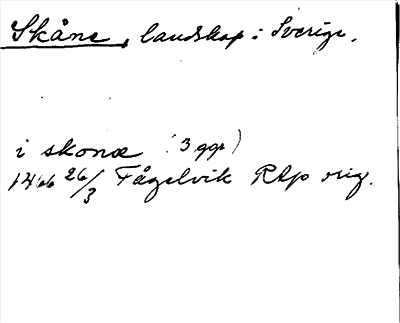 Skåne, landskap i Sverige.
i skonæ (3 ggr)
1466 26/3 Fågelvik RAp orig.